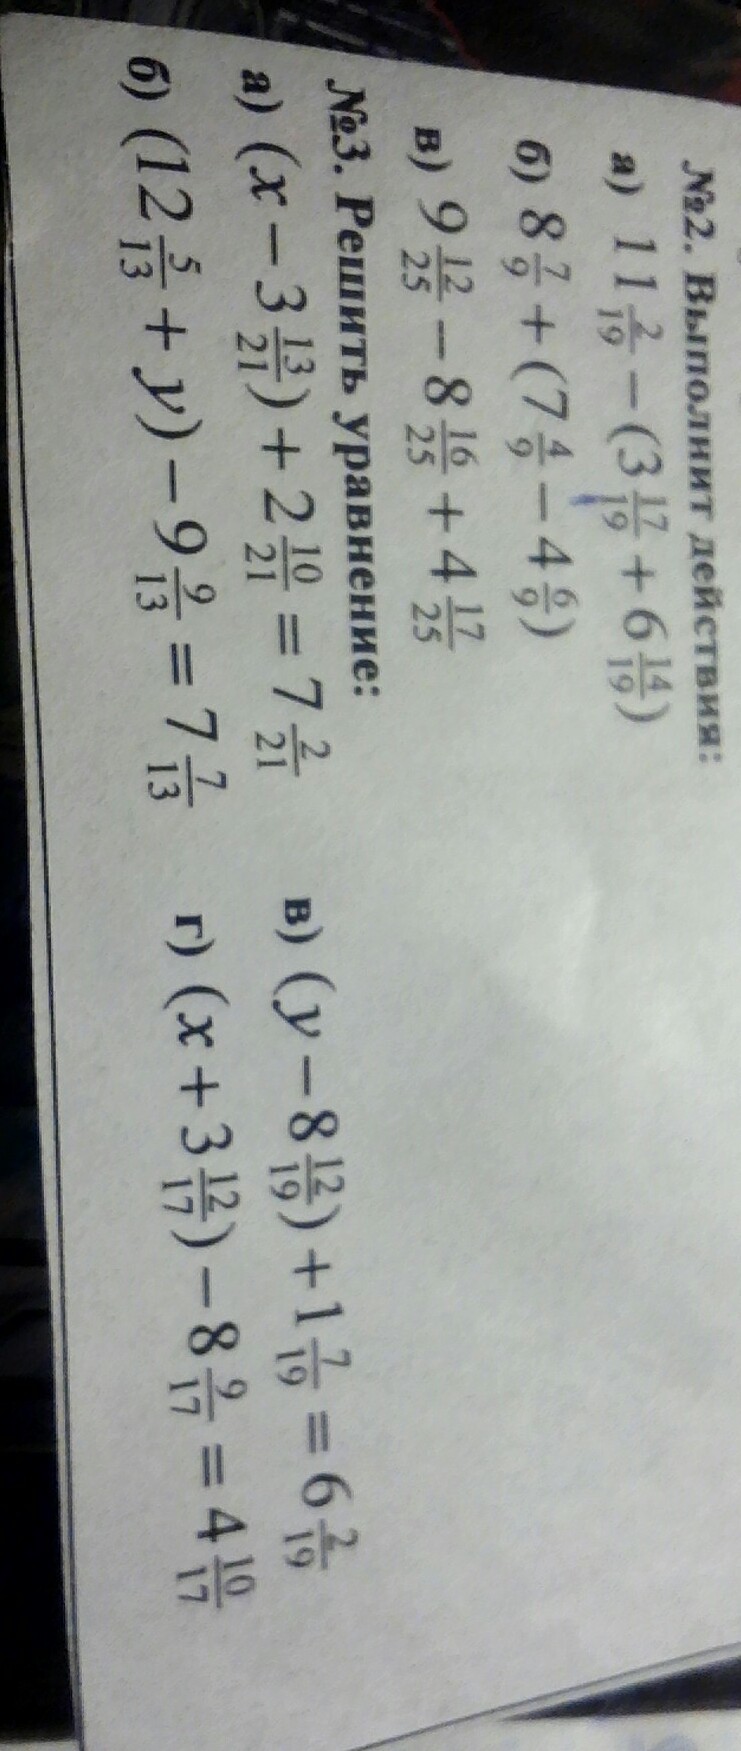 №2. Выполнит действия:
а) 11 2/19 − (3 17/19 + 6 14/19)
б) 8 7/9 + (7 4/9 − 4 6/9)
в) 9 12/25 − 8 16/25 + 4 17/25
№3. Решить уравнение:
а) (x − 3 13/21) + 2 10/21 = 7 2/21 в) (y − 8 12/19) + 1 7/19 = 6 2/19
б) (12 5/13 + y) − 9 9/13 = 7 7/13 г) (x + 3 12/17) − 8 9/17 = 4 10/17